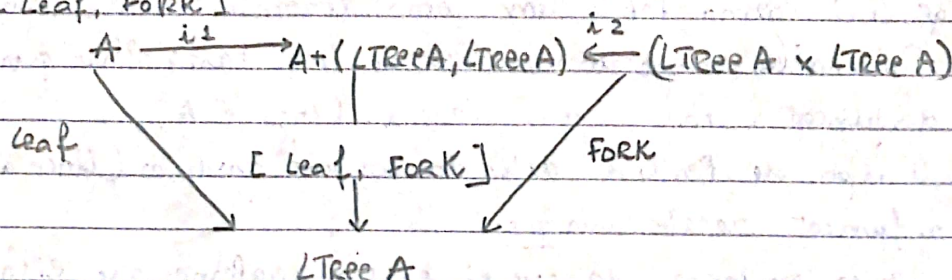 Leaf, FORK]
i1 i2
A A+(LTReeA, LTReeA) (LTRee A x LTRee A)
Leaf [Leaf, FORK] FORK
LTRee A